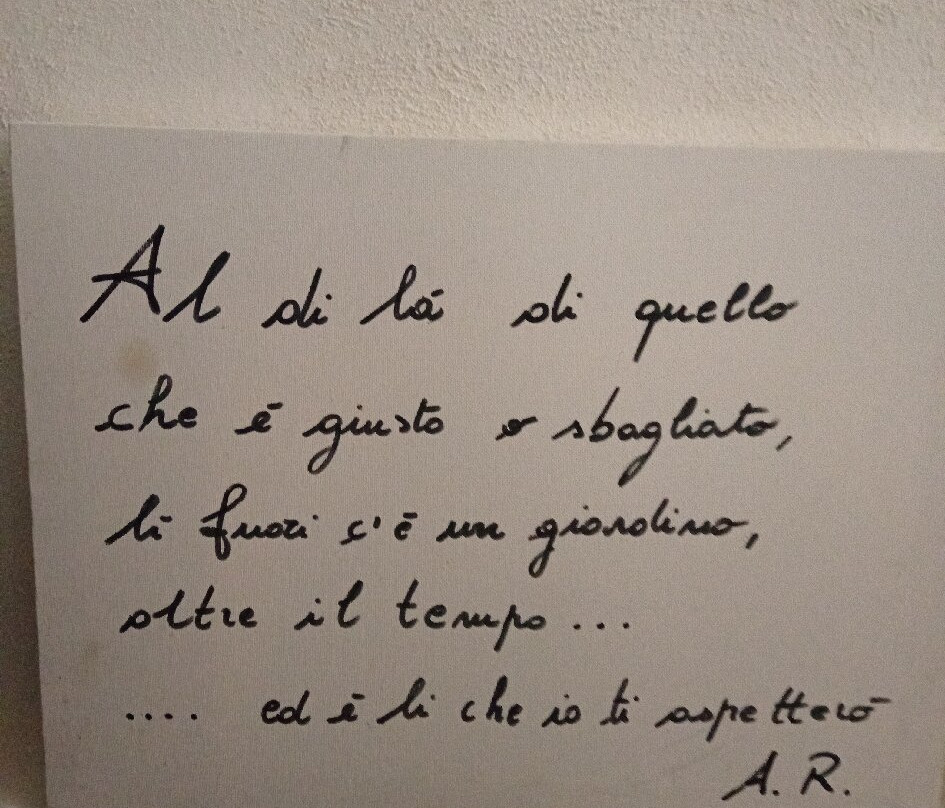 Al di là di quello
che è giusto o sbagliato,
lì fuori c'è un giardino,
oltre il tempo...
.... ed è lì che io ti aspetterò
A. R.